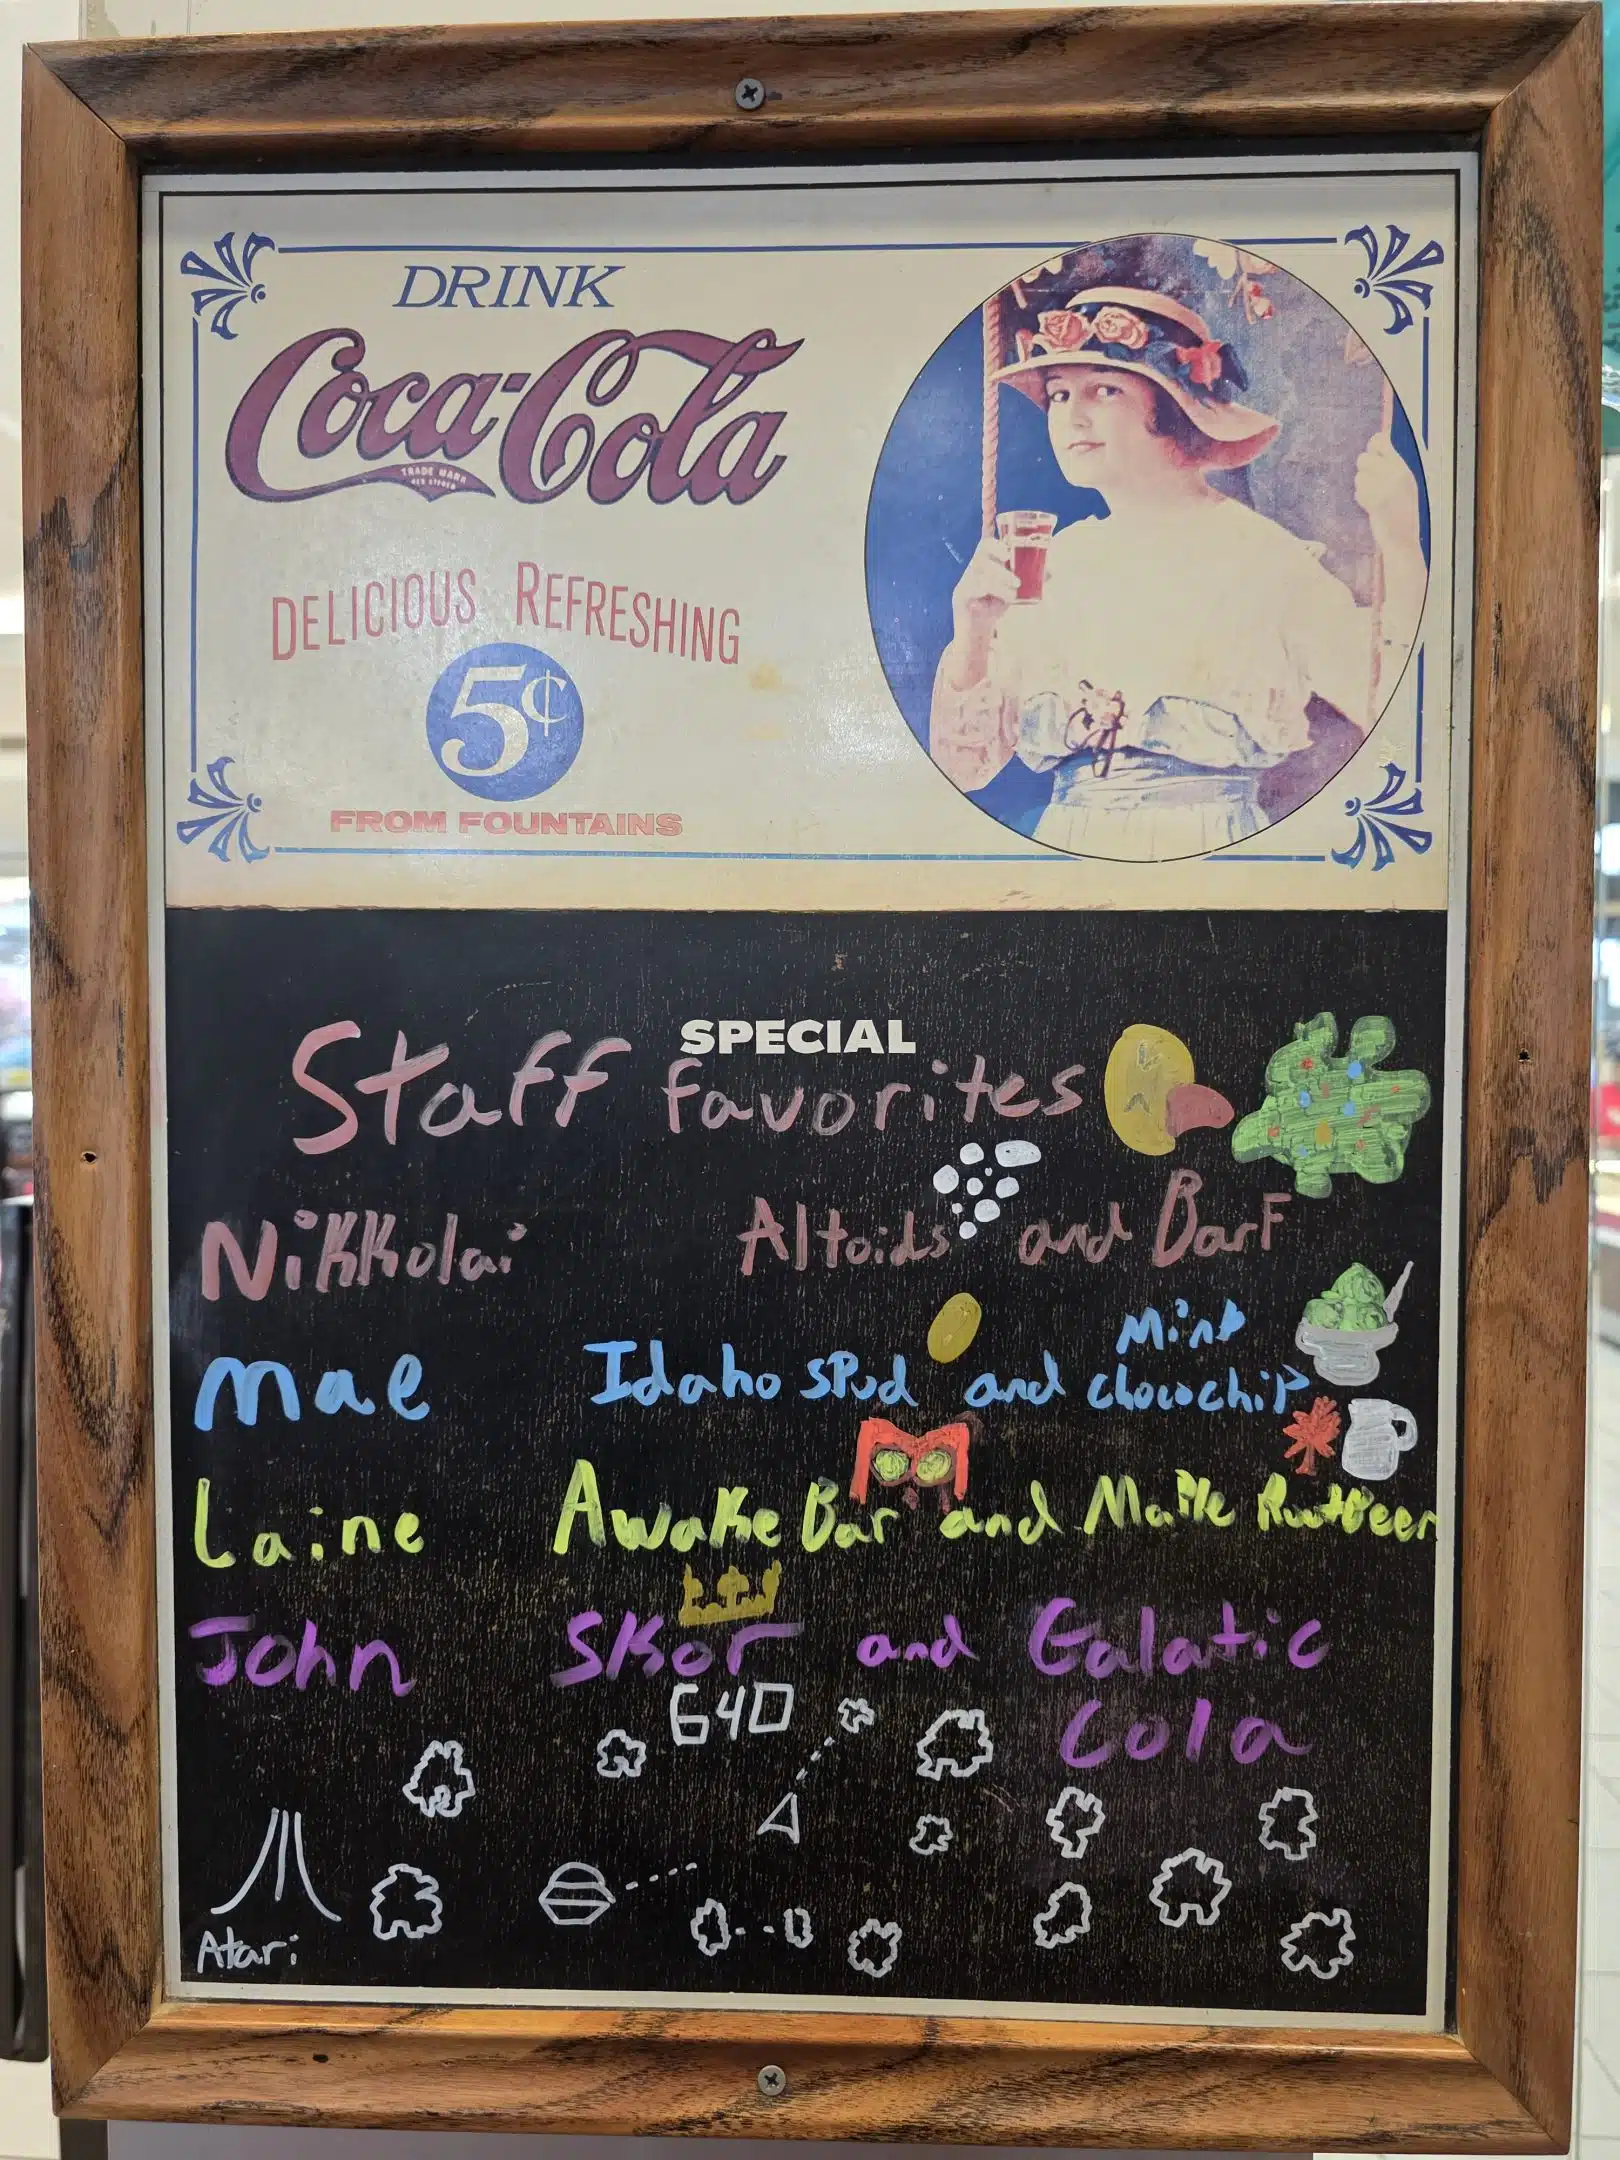 DRINK
Coca-Cola
TRADE MARK
DELICIOUS REFRESHING
5¢
FROM FOUNTAINS
SPECIAL
Staff favorites
Nikkolai Altoids and Barf
Mae Idaho spud and Mint chocochip
Laine Awake Bar and Maple Rootbeer
John Skor and Galatic Cola
640
Atari